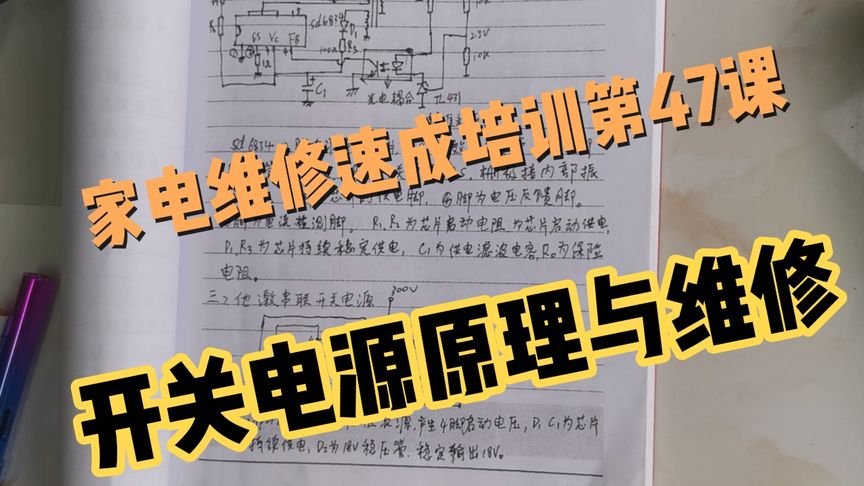 sd6834
D1
GS Vc FB
100Ω R3
2.5V
10K
1Ω
C1
光电耦合 TL431
家电维修速成培训第47课
sd6834
栅极接内部振
供电脚, 6脚为电压反馈脚。
脚为电流检测脚. R1,R2为芯片启动电阻,为芯片启动供电,
D1,R3为芯片持续稳定供电, C1为供电滤波电容,R0为保险
电阻。
三、他激串联开关电源
300V
开关电源原理与维修
产生4脚启动电压, D1 C1为芯片
持续供电, D2为18V稳压管. 稳定输出18V。